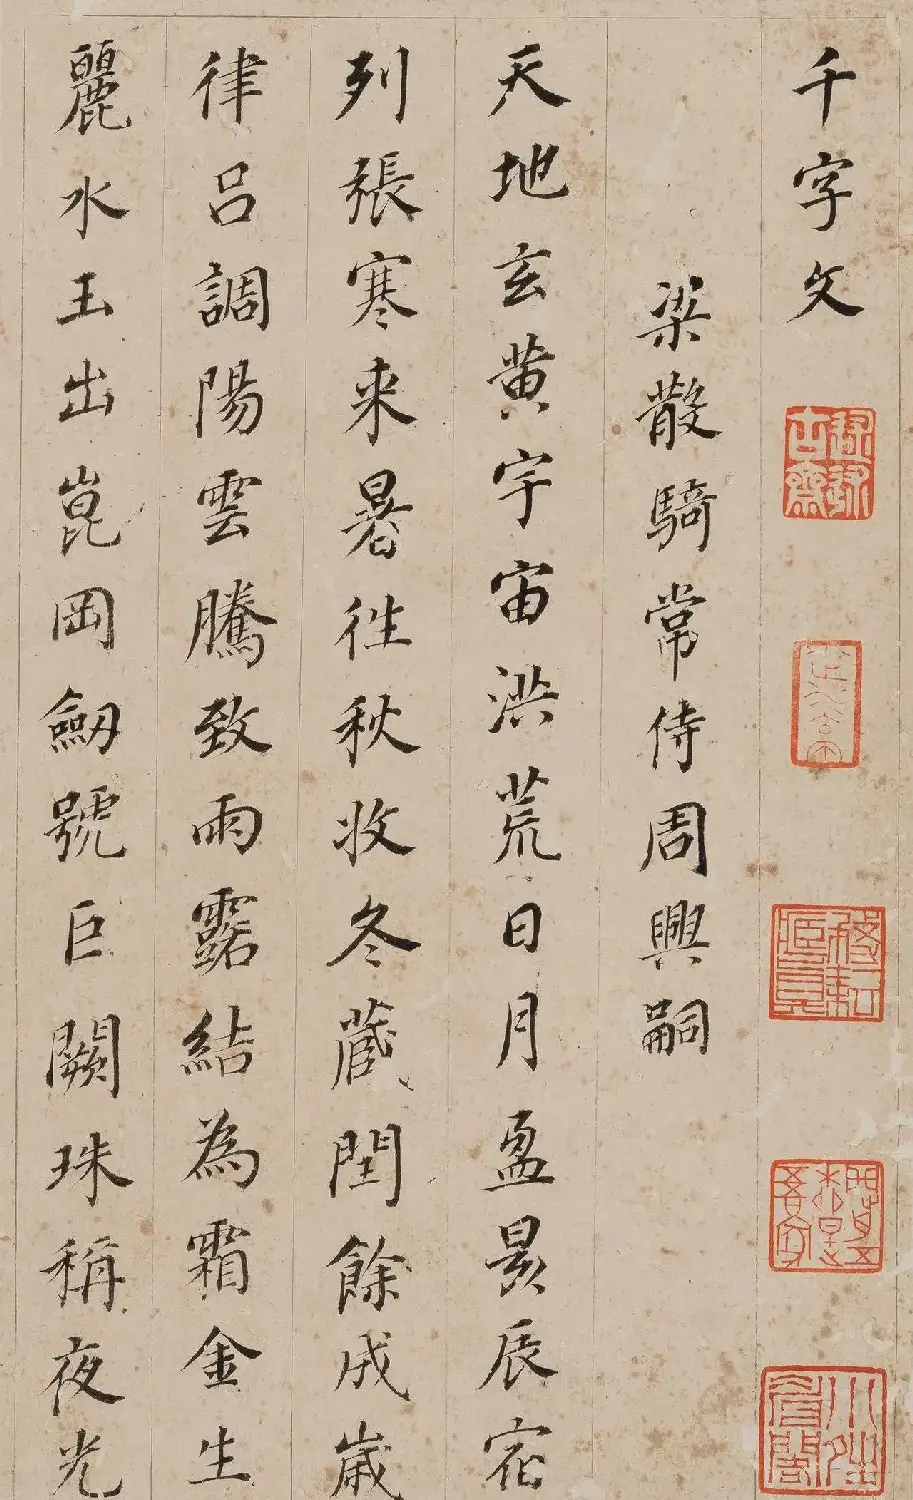 千字文
梁散騎常侍周興嗣
天地玄黃宇宙洪荒日月盈昃辰宿
列張寒来暑往秋收冬蔵閏餘成歲
律呂調陽雲騰致雨露結為霜金生
麗水玉出崑岡劒號巨闕珠稱夜光